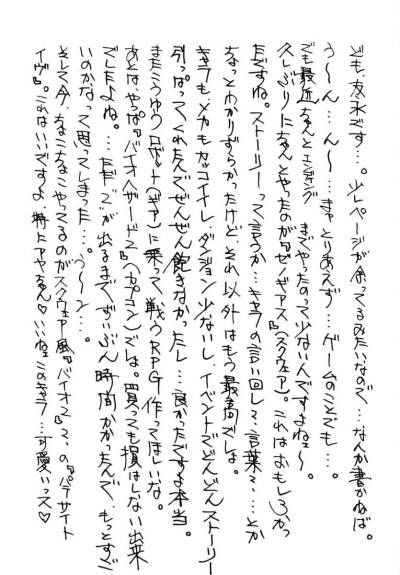 ども、友永です…。少しページが余ってるみたいなので…なんか書かねば。
う〜ん…ん〜…きゃとりあえず…ゲームのことでも…。
でも最近ちゃんとエンディングまでやったのって少ないんですよね〜。
久しぶりにちゃんとやったのが『ゼノギアス』(スクウェア)。これはおもしろかっ
たですね。ストーリーって言うか…キャラの言い回しと…言葉と…とか
ちょっとわかりずらかったけど、それ以外はもう最高でしょ。
キャラもメカもカッコイイし、ダンジョン少ないし、イベントでどんどんストーリー
引っぱってくれたんでぜんぜん飽きなかったし…良かったですよ本当。
またこうゆうロボット(ギア)に乗って戦うRPG作ってほしいな。
あとはやっぱ『バイオハザード2』(カプコン)でしょ。買っても損はしない出来
でしたよね。…ただ“2”が出るまでずいぶん時間かかったんで、もっとすご
いのかなって思ってしまった…。う〜ん…。
そして今、ちょこちょこやってるのがスクウェア風『バイオ2』…の『パラサイト
イヴ』。これはいいですよ特にアヤちゃん♡いいねェこのキャラ…可愛いっス♡